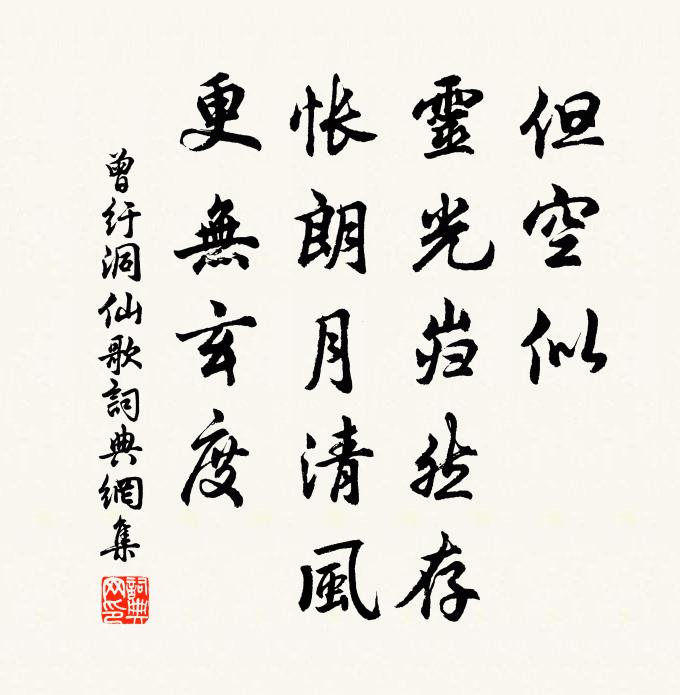 但空似
靈光岿然存
怅朗月清風
更無玄度
曾纡洞仙歌詞典網集
詞典网印